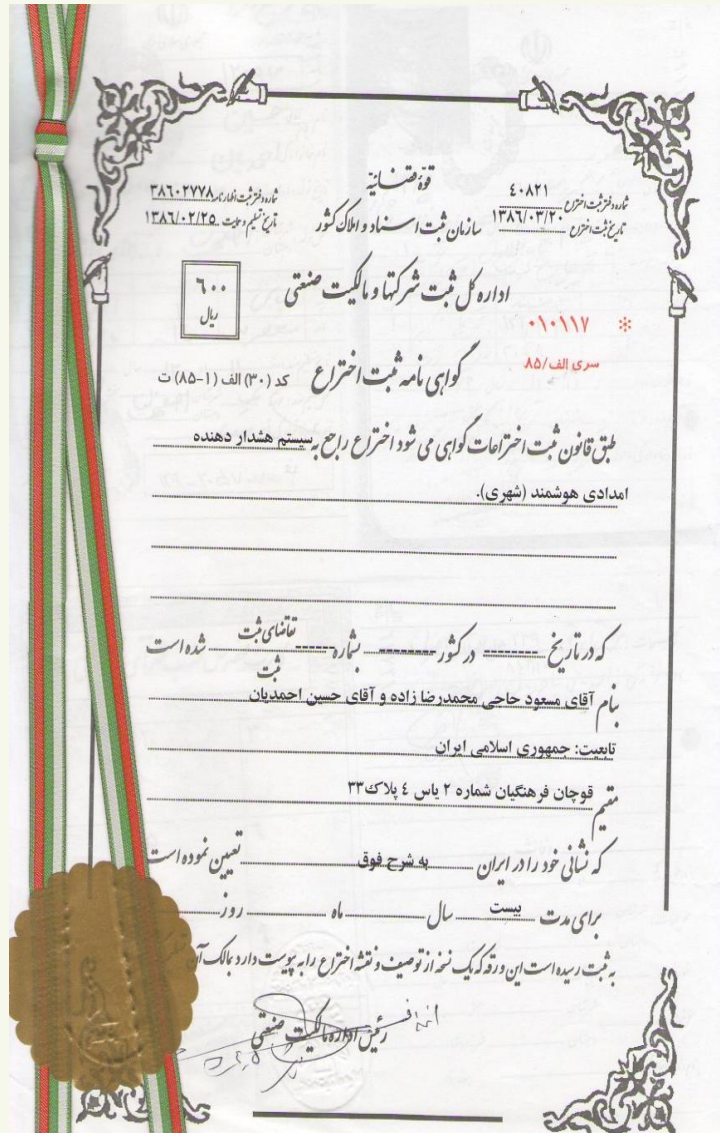 قوهٔ قضائیه
شماره دفتر ثبت اختراع ٤٠٨٢١
شماره دفتر ثبت اظهارنامه ٣٨٦٠٢٧٧٨
تاریخ ثبت اختراع ١٣٨٦/٠٣/٢٠
سازمان ثبت اسناد و املاک کشور
تاریخ تسلیم و رویت ١٣٨٦/٠٢/٢٥
اداره کل ثبت شرکتها و مالکیت صنعتی
٦٠٠
ریال
٠١٠١١٧ *
سری الف/٨٥
گواهی نامه ثبت اختراع
کد (٣٠) الف (١-٨٥) ت
طبق قانون ثبت اختراعات گواهی می شود اختراع راجع به سیستم هشدار دهنده
امدادی هوشمند (شهری).
که در تاریخ -------- در کشور -------- بشماره ------ تقاضای ثبت شده است
ثبت
بنام آقای مسعود حاجی محمدرضا زاده و آقای حسین احمدیان
تابعیت: جمهوری اسلامی ایران
مقیم قوچان فرهنگیان شماره ٢ یاس ٤ پلاک ٣٣
که نشانی خود را در ایران به شرح فوق تعیین نموده است
برای مدت بیست سال ماه روز
به ثبت رسیده است این ورقه که یک نسخه از توصیف و نقشه اختراع را به پیوست دارد بمالک آن
رئیس اداره مالکیت صنعتی